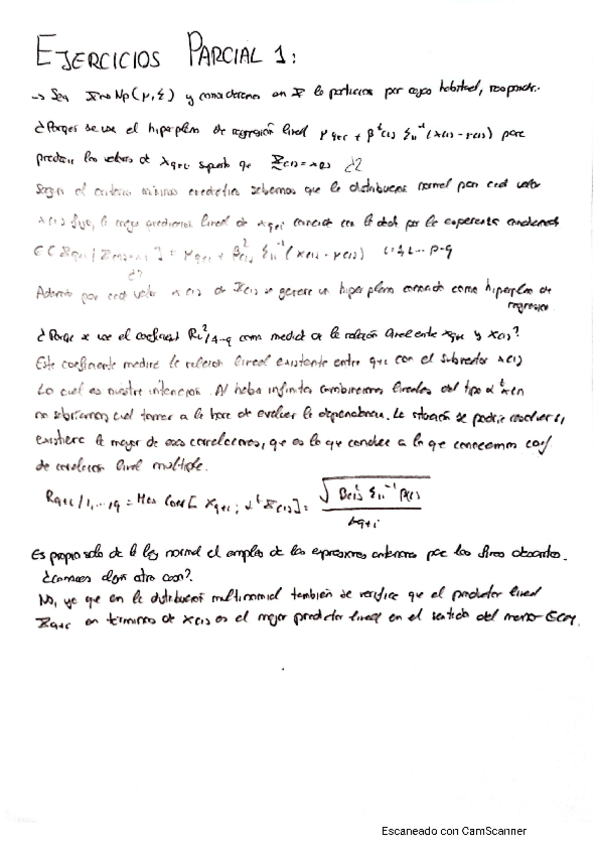 EJERCICIOS PARCIAL 1:
→ Sea X ~ Np(μ, Σ) y consideremos en X la particion por cajas habitual, responde.
¿Porque se usa el hiperplano de regresión lineal μq+i + βt(i) Σ11-1 (x(1) - μ(1)) para
predecir los valores de xq+i supuesto que X(1) = x(1)
Según el criterio mínimo cuadrático sabemos que la distribucion normal para cada valor
x(1) fijo, la mejor prediccion lineal de xq+i coincide con la dada por la esperanza condicionada
= μq+i + Σ11-1 (x(1) - μ(1)) p-q
Además por cada valor x(1) de X(1) se genera un hiperplano conocido como hiperplano de
regresion
¿Porque se usa el coeficiente como medida de la relación lineal entre xq+i y x(1)?
Este coeficiente medira la relacion lineal existente entre q+i con el subvector x(1)
Lo cual es nuestra intencion. Al haber infinitas combinaciones lineales del tipo αt x(1)
no sabriamos cual tomar a la hora de evaluar la dependencia. La situación se podria resolver si
existiera la mayor de esas correlaciones, que es lo que conduce a lo que conocemos coef
de correlacion lineal multiple.
Rq+i/1,...,q = Max Corr[ Xq+i ; αt X(1) ] = √ Σ11-1 β(i)
Es propio solo de la ley normal el empleo de las expresiones anteriores para los fines
¿conoces algun otro caso?.
No, ya que en la distribución multinomial también se verifica que el predictor lineal
Xq+i en términos de x(1) es el mejor predictor lineal en el sentido del menor ECM.
Escaneado con CamScanner